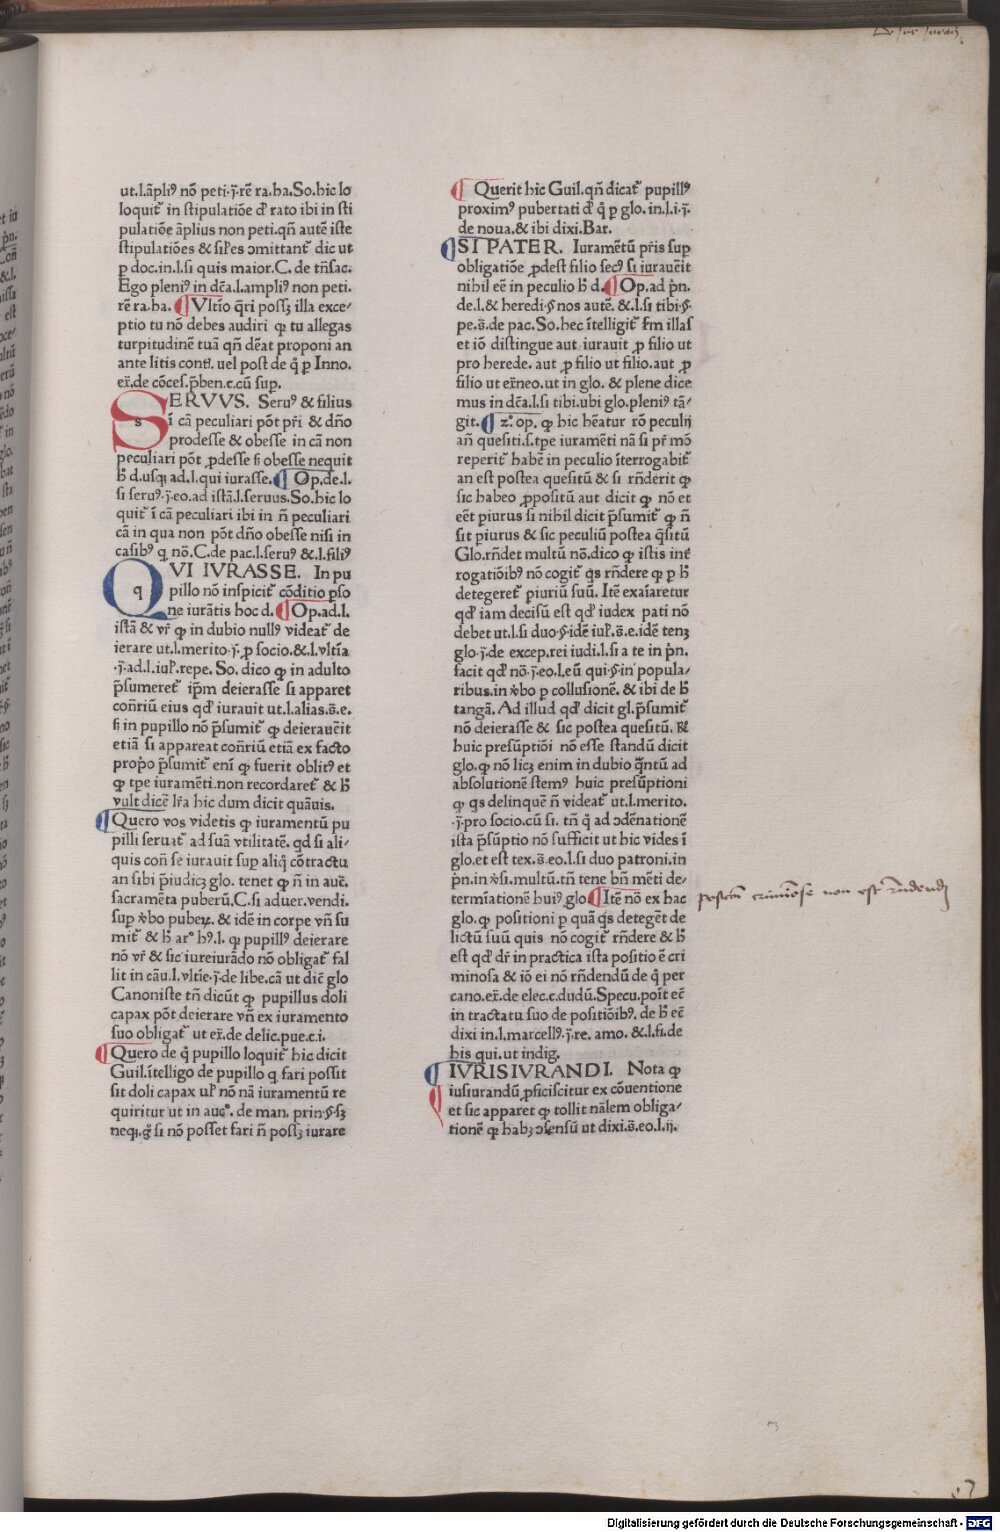 De Jure Jurand.
ut.l.ãpliꝰ nõ peti.ȷ̃.rẽ ra.ha.So.hic lo
loquit᷑ in stipulatiõe d̕ rato ibi in sti
pulatiõe ãplius non peti.qñ autẽ iste
stipulatiões & siłes ɔmittant᷑ dic ut
p doc.in.l.si quis maior.C. de trñsac.
Ego pleniꝰ in dc̃a.l.ampliꝰ non peti.
rẽ ra.ha. ¶Vltĩo q̃ri possꝫ illa exce/
ptio tu nõ debes audiri ꝙ tu allegas
turpitudinẽ tuã qñ dẽat proponi an
ante litis conti. uel post de q̃ p Inno.
ex̃.de cõces.p̃ben.c.cũ sup.
SERVVS. Seruꝰ & filius
ĩ cã peculiari põt pr̃i & dño
prodesse & obesse in cã non
peculiari põt ꝓdesse s̃ obesse nequit
h̃ d.usqꝫ ad.l.qui iurasse.¶ Op.de.l.
si seruꝰ.ȷ̃.eo.ad istã.l.seruus.So.hic lo
quit᷑ ĩ cã peculiari ibi in ñ peculiari
cã in qua non põt dño obesse nisi in
casibꝰ q̃ nõ.C.de pac.l.seruꝰ & l.filiꝰ
QVI IVRASSE. In pu
pillo nõ inspicit᷑ cõditio ꝑso
ne iurãtis hoc d.¶Op.ad.l.
istã & vr̃ ꝙ in dubio nullꝰ videat᷑ de
ierare ut.l.merito.ȷ̃.ꝓ socio.&.l.vltĩa
.ȷ̃.ad.l.iuł.repe. So. dico ꝙ in adulto
p̃sumeret᷑ ip̃m deierasse si apparet
coñriũ eius qd̕ iurauit ut.l.alias.s̃.e.
s̃ in pupillo nõ p̃sumit᷑ ꝙ deierauẽit
etiã si appareat coñriũ etiã ex facto
prop̕o p̃sumit᷑ eni᷑ ꝙ fuerit oblitꝰ et
ꝙ tp̃e iuramẽti.non recordaret᷑ & h̃
vult dicẽ lr̃a hic dum dicit quãuis.
¶Quero vos videtis ꝙ iuramentũ pu
pilli seruat᷑ ad suã vtilitatẽ. qd si ali/
quis coñ se iurauit sup aliq̃ cõtractu
an sibi p̃iudicꝫ glo. tenet ꝙ ñ in autẽ.
sacramẽta puberũ.C.si aduer.vendi.
sup ꝟbo pubeꝝ. & idẽ in corpe vñ su
mit᷑ & h̃ ar° hꝰ.l. ꝙ pupillꝰ deierare
nõ vr̃ & sic iureiurãdo nõ obligat᷑ fal
lit in cãu.l.vltĩe.ȷ̃.de libe.cã ut dic̃ glo
Canoniste tñ dicũt ꝙ pupillus doli
capax põt deierare vñ ex iuramento
suo obligat᷑ ut ex̃.de delic.pue.c.i.
¶Quero de q̃ pupillo loquit᷑ hic dicit
Guil.ĩtelligo de pupillo q̃ fari possit
sit doli capax uł nõ nã iuramentũ re
quiritur ut in auc°. de man. prin.§.sꝫ
neqꝫ.g̃ si nõ posset fari ñ possꝫ iurare
¶ Querit hic Guil.qñ dicat᷑ pupillꝰ
proximꝰ pubertati d̕ q̃ p glo.in.l.i.ȷ̃.
de noua.& ibi dixi.Bar.
¶SI PATER. Iuramẽtũ pr̃is sup
obligatiõe ꝓdest filio secꝰ si iurauẽit
nihil eẽ in peculio h̃ d.¶Op.ad p̃n.
de.l.& heredi.§ nos autẽ.&.l.si tibi.§.
pe.s̃.de pac.So.hec ĩtelligit᷑ s̃m illas
et iõ distingue aut iurauit ꝓ filio ut
pro herede. aut ꝓ filio ut filio.aut ꝓ
filio ut ex̃neo.ut in glo. & plene dice
mus in dc̃a.l.si tibi.ubi glo.pleniꝰ tã/
git.¶ z°.op. ꝙ hic hẽatur rõ peculij
añ quesiti.s.tp̃e iuramẽti nã si pr̃ mõ
reperit᷑ habẽ in peculio ĩterrogabit᷑
an est postea quesitũ & si rñderit ꝙ
sic habeo ꝓpositũ aut dicit ꝙ nõ et
eẽt piurus si nihil dicit p̃sumit᷑ ꝙ ñ
sit piurus & sic peculiũ postea q̃sitũ
Glo.rñdet multũ nõ.dico ꝙ istis int᷑
rogatiõibꝰ nõ cogit᷑ q̃s rñdere ꝙ p h̃
detegeret᷑ piuriũ suũ. Itẽ exaĩaretur
qd̕ iam decisũ est qd̕ iudex pati nõ
debet ut.l.si duo.§.idẽ iuł.s̃.e.idẽ tenꝫ
glo.ȷ̃.de excep.rei iudi.l.si a te in p̃n.
facit qd̕ nõ.ȷ̃.eo.l.eũ qui.§.in popula/
ribus.in ꝟbo p collusionẽ. & ibi de h̃
tangã. Ad illud qd̕ dicit gl.p̃sumit᷑
nõ deierasse & sic postea quesitũ. R̃
huic presũptiõi nõ esse standũ dicit
glo.ꝙ nõ licꝫ enim in dubio q̃ntũ ad
absolutionẽ stemꝰ huic presũptioni
ꝙ q̃s delinque ñ videat᷑ ut.l.merito.
.ȷ̃.pro socio.cũ si. tñ q̃ ad ɔdẽnationẽ
ista p̃sũptio nõ sufficit ut hic vides ĩ
glo.et est tex.s̃.eo.l.si duo patroni.in
p̃n.in ꝟsi.multũ.tñ tene bñ mẽti de/
termĩationẽ huiꝰ glo¶Itẽ nõ ex hac
glo.ꝙ positioni p quã q̃s detegẽt de
lictũ suũ quis nõ cogit᷑ rñdere & h̃
est qd̕ dr̃ in practica ista positio ẽ cri
minosa & iõ ei nõ rñdendũ de q̃ per
cano.ex̃.de elec.c.dudũ.Specu.poĩt eẽ
in tractatu suo de positiõibꝰ. de h̃ eẽ
dixi in.l.marcellꝰ.ȷ̃.re. amo. &.l.fi.de
his qui.ut indig.
¶IVRISIVRANDI. Nota ꝙ
iusiurandũ ꝓficiscitur ex cõuentione
et sic apparet ꝙ tollit nãlem obliga/
tionẽ ꝙ habꝫ ɔsensũ ut dixi.s̃.eo.l.ij.
positioni criminose non est rñdend
Digitalisierung gefördert durch die Deutsche Forschungsgemeinschaft - DFG